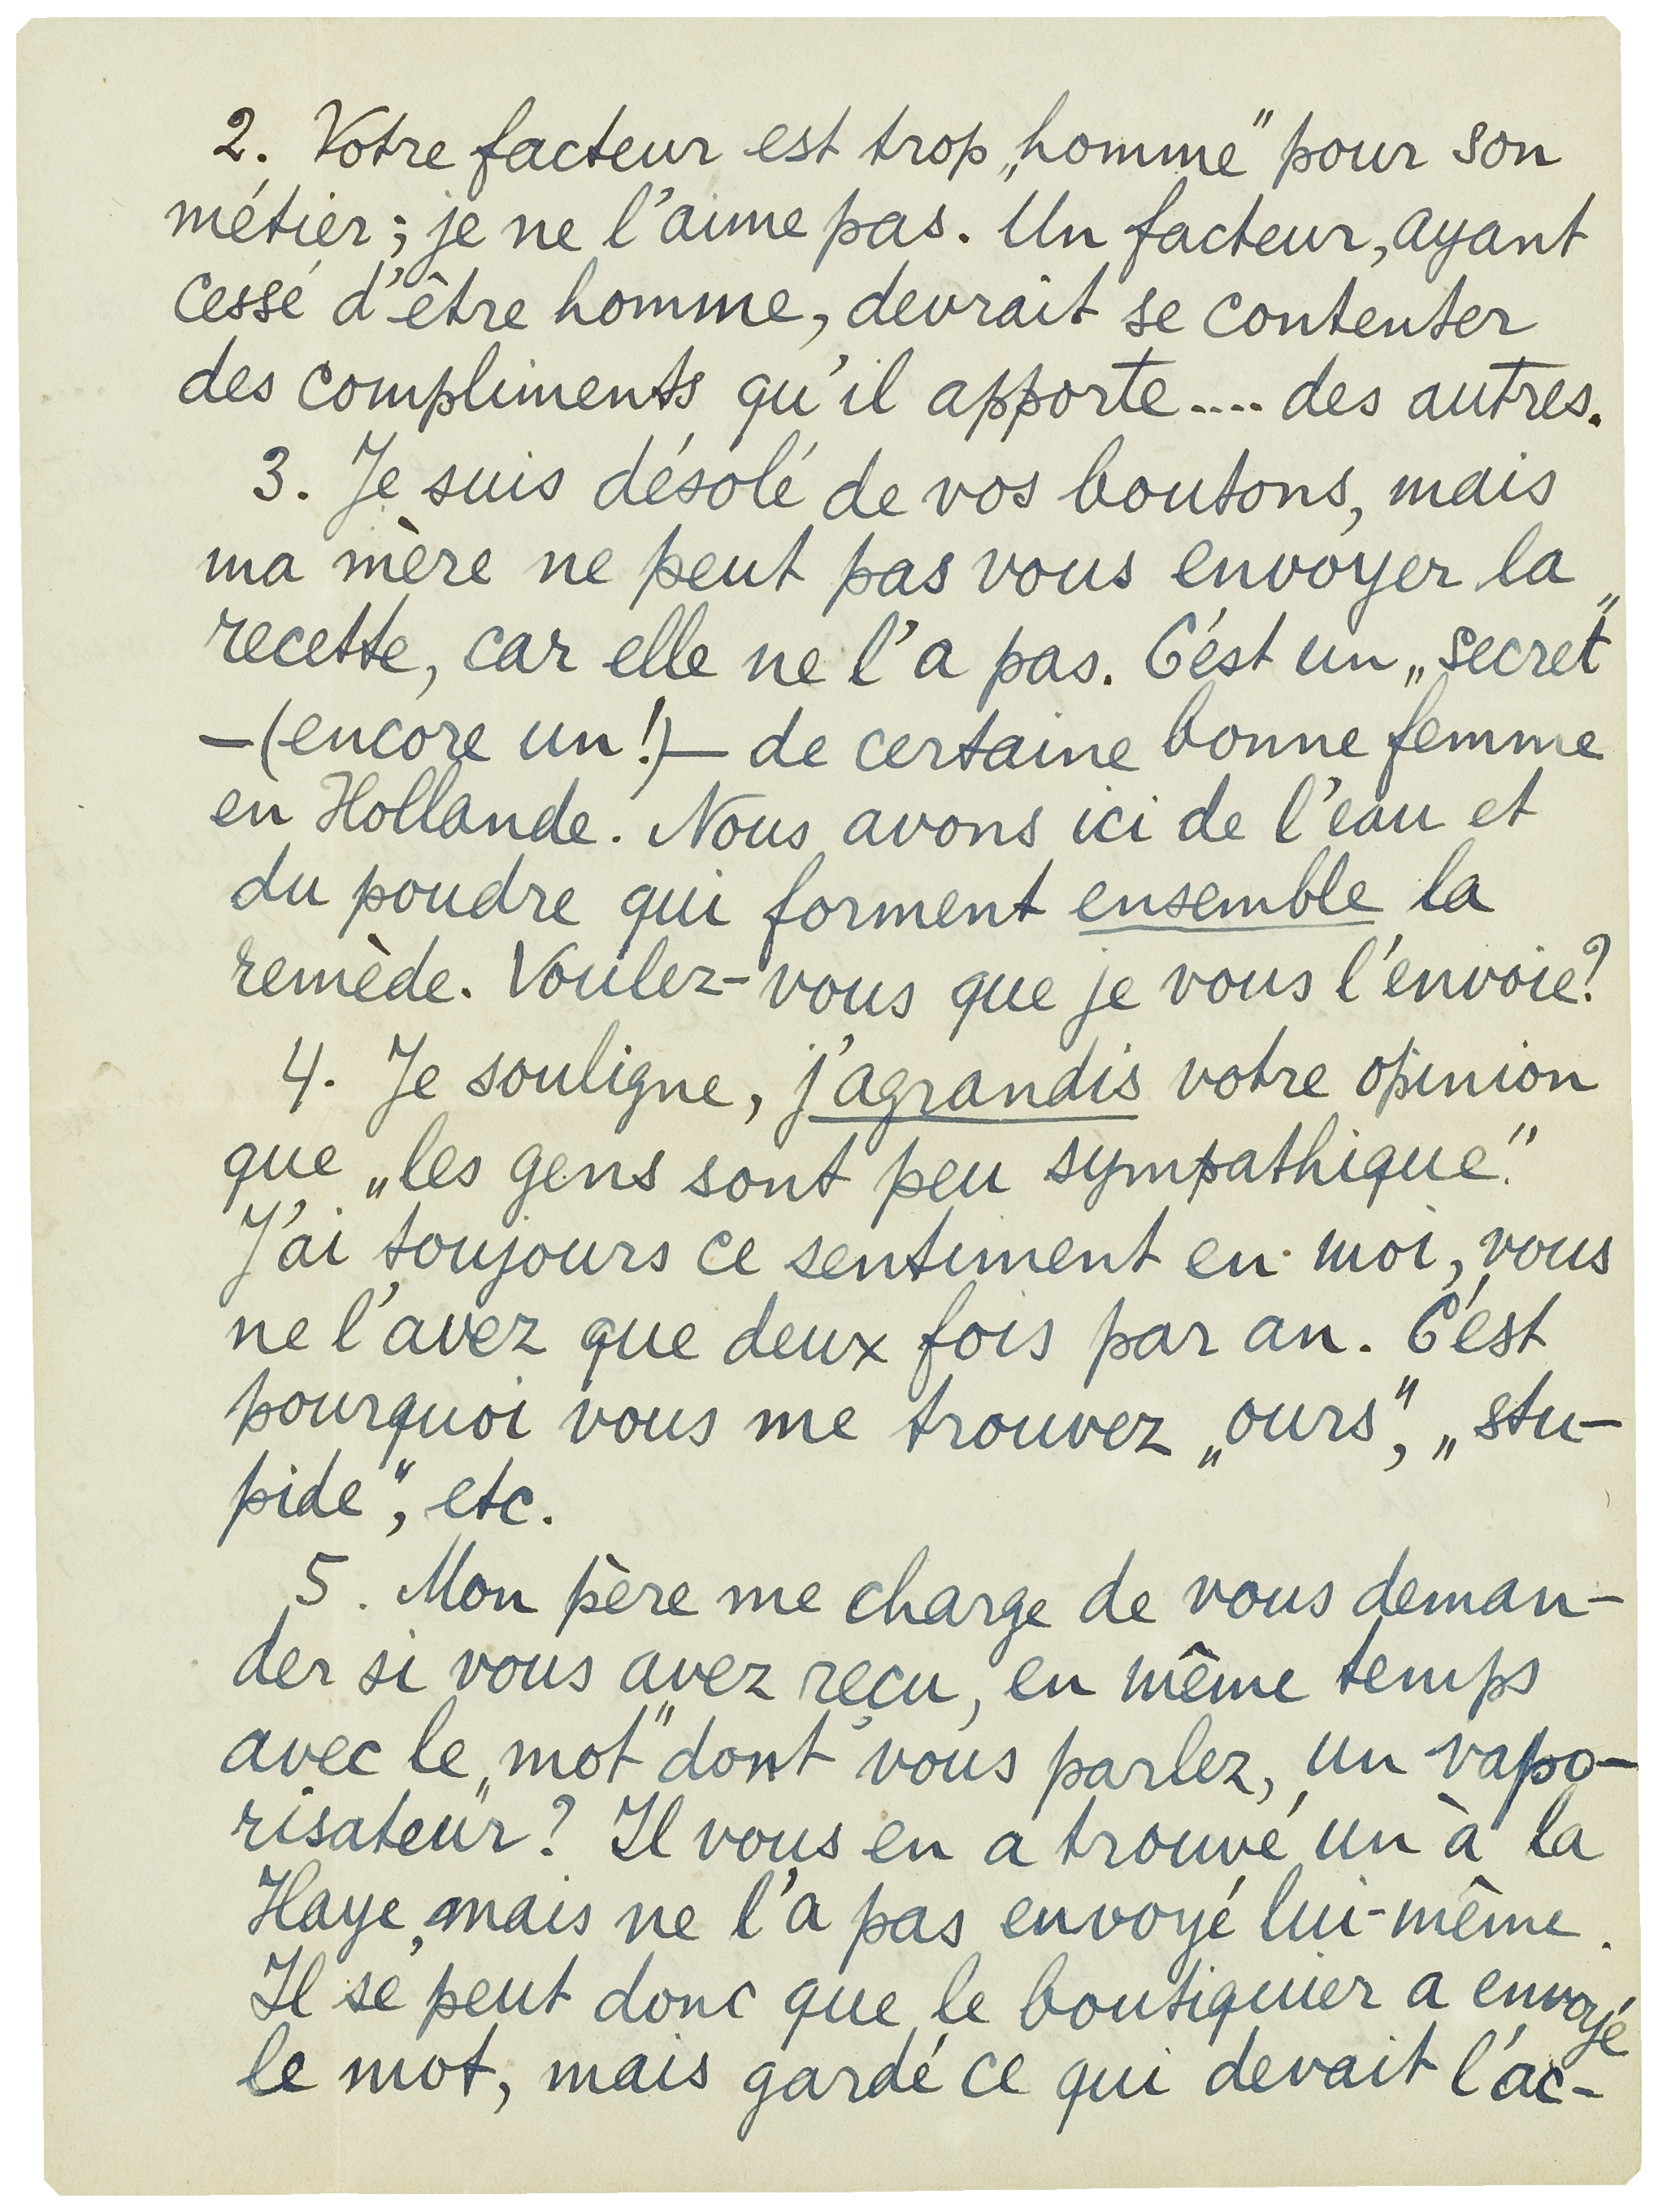 2. Votre facteur est trop „homme” pour son
métier; je ne l'aime pas. Un facteur, ayant
cessé d'être homme, devrait se contenter
des compliments qu'il apporte.... des autres.
3. Je suis désolé de vos boutons, mais
ma mère ne peut pas vous envoyer la
recette, car elle ne l'a pas. C'est un „secret”
—(encore un!)— de certaine bonne femme
en Hollande. Nous avons ici de l'eau et
du poudre qui forment ensemble la
remède. Voulez-vous que je vous l'envoie?
4. Je souligne, j'agrandis votre opinion
que „les gens sont peu sympathique”.
J'ai toujours ce sentiment en moi, vous
ne l'avez que deux fois par an. C'est
pourquoi vous me trouvez „ours”, „stu-
pide”, etc.
5. Mon père me charge de vous deman-
der si vous avez reçu, en même temps
avec le „mot” dont vous parlez, un vapo-
risateur? Il vous en a trouvé un à la
Haye, mais ne l'a pas envoyé lui-même.
Il se peut donc que le boutiquier a envoyé
le mot, mais gardé ce qui devait l'ac-